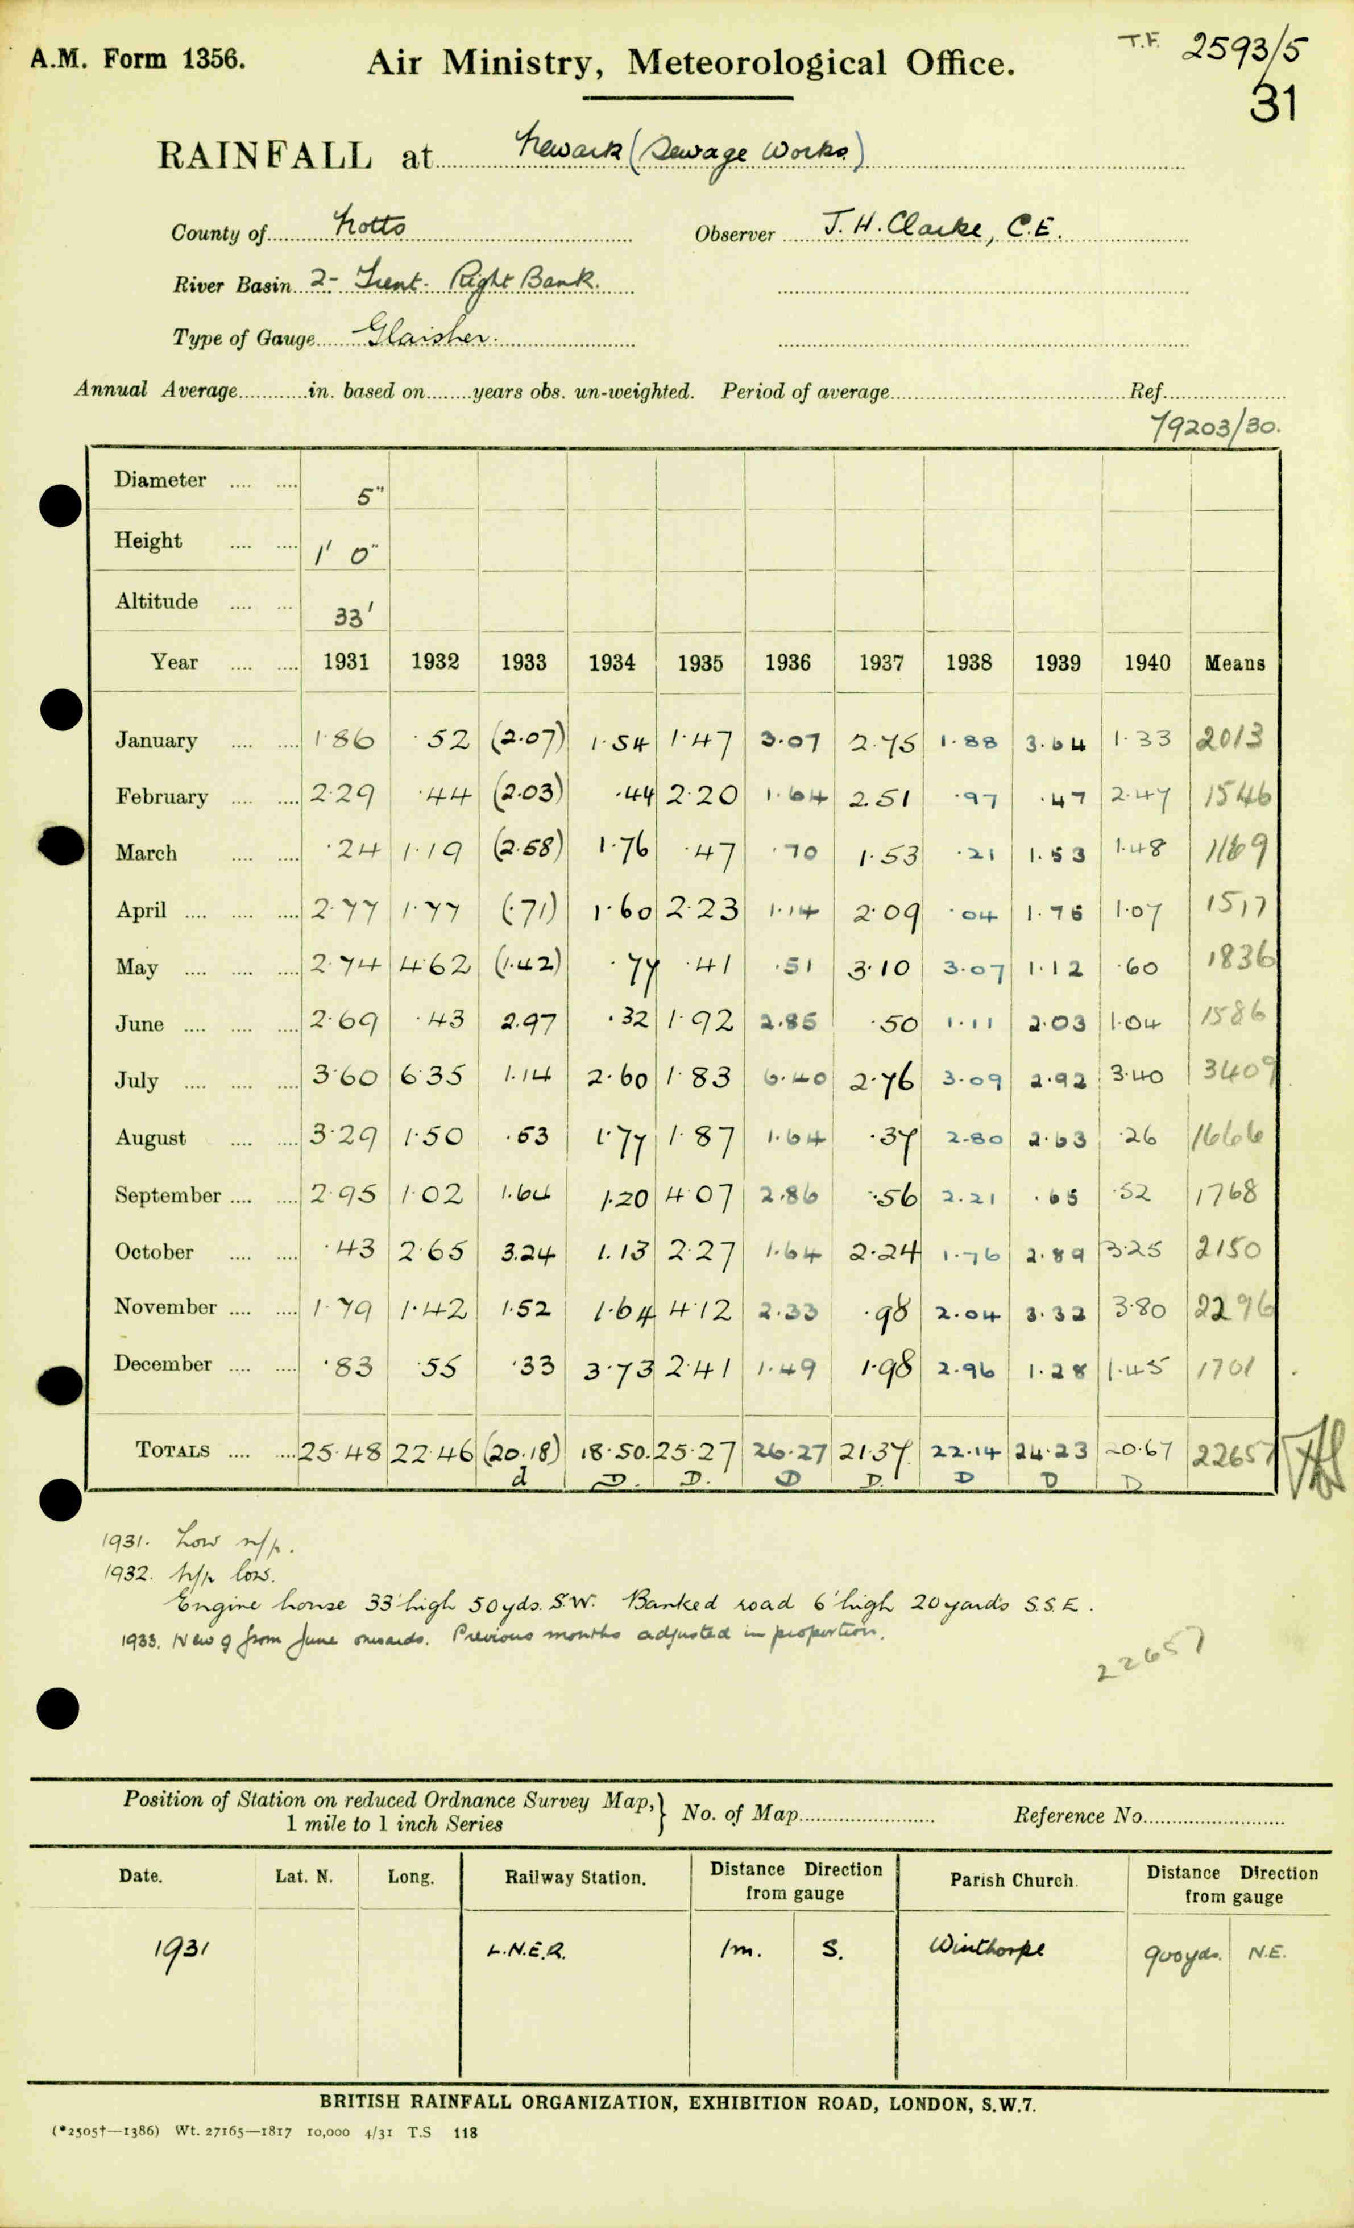 A.M. Form 1356.
Air Ministry, Meteorological Office.
T.F. 2593/5
31
RAINFALL at Newark (Sewage Works)
County of Notts Observer J. H. Clarke, C.E.
River Basin 2- Trent- Right Bank.
Type of Gauge Glaisher.
Annual Average in. based on years obs. un-weighted. Period of average Ref.
79203/30.
Diameter 5"
Height 1' 0"
Altitude 33'
Year 1931 1932 1933 1934 1935 1936 1937 1938 1939 1940 Means
January 1.86 .52 (2.07) 1.54 1.47 3.07 2.75 1.88 3.64 1.33 2013
February 2.29 .44 (2.03) .44 2.20 1.64 2.51 .97 .47 2.47 1546
March .24 1.19 (2.58) 1.76 .47 .70 1.53 .21 1.53 1.48 1169
April 2.77 1.77 (.71) 1.60 2.23 1.14 2.09 .04 1.75 1.07 1517
May 2.74 4.62 (1.42) .77 .41 .51 3.10 3.07 1.12 .60 1836
June 2.69 .43 2.97 .32 1.92 2.85 .50 1.11 2.03 1.04 1586
July 3.60 6.35 1.14 2.60 1.83 6.40 2.76 3.09 2.92 3.40 3409
August 3.29 1.50 .53 1.77 1.87 1.64 .37 2.80 2.63 .26 1666
September 2.95 1.02 1.64 1.20 4.07 2.86 .56 2.21 .65 .52 1768
October .43 2.65 3.24 1.13 2.27 1.64 2.24 1.76 2.89 3.25 2150
November 1.79 1.42 1.52 1.64 4.12 2.33 .98 2.04 3.32 3.80 2296
December .83 .55 .33 3.73 2.41 1.49 1.98 2.96 1.28 1.45 1701
TOTALS 25.48 22.46 (20.18) 18.50. 25.27 26.27 21.37 22.14 24.23 20.67 22657
d D. D. D D. D D D
1931. Low n/p.
1932. N/p low.
Engine house 33' high 50 yds. S.W. Banked road 6' high 20 yards S.S.E.
1933. New g from June onwards. Previous months adjusted in proportion.
22657
Position of Station on reduced Ordnance Survey Map, } No. of Map Reference No.
1 mile to 1 inch Series
Date. Lat. N. Long. Railway Station. Distance Direction from gauge Parish Church. Distance Direction from gauge
1931 L.N.E.R. 1m. S. Winthorpe 900yds. N.E.
BRITISH RAINFALL ORGANIZATION, EXHIBITION ROAD, LONDON, S.W.7.
(*2505†—1386) Wt. 27165—1817 10,000 4/31 T.S 118